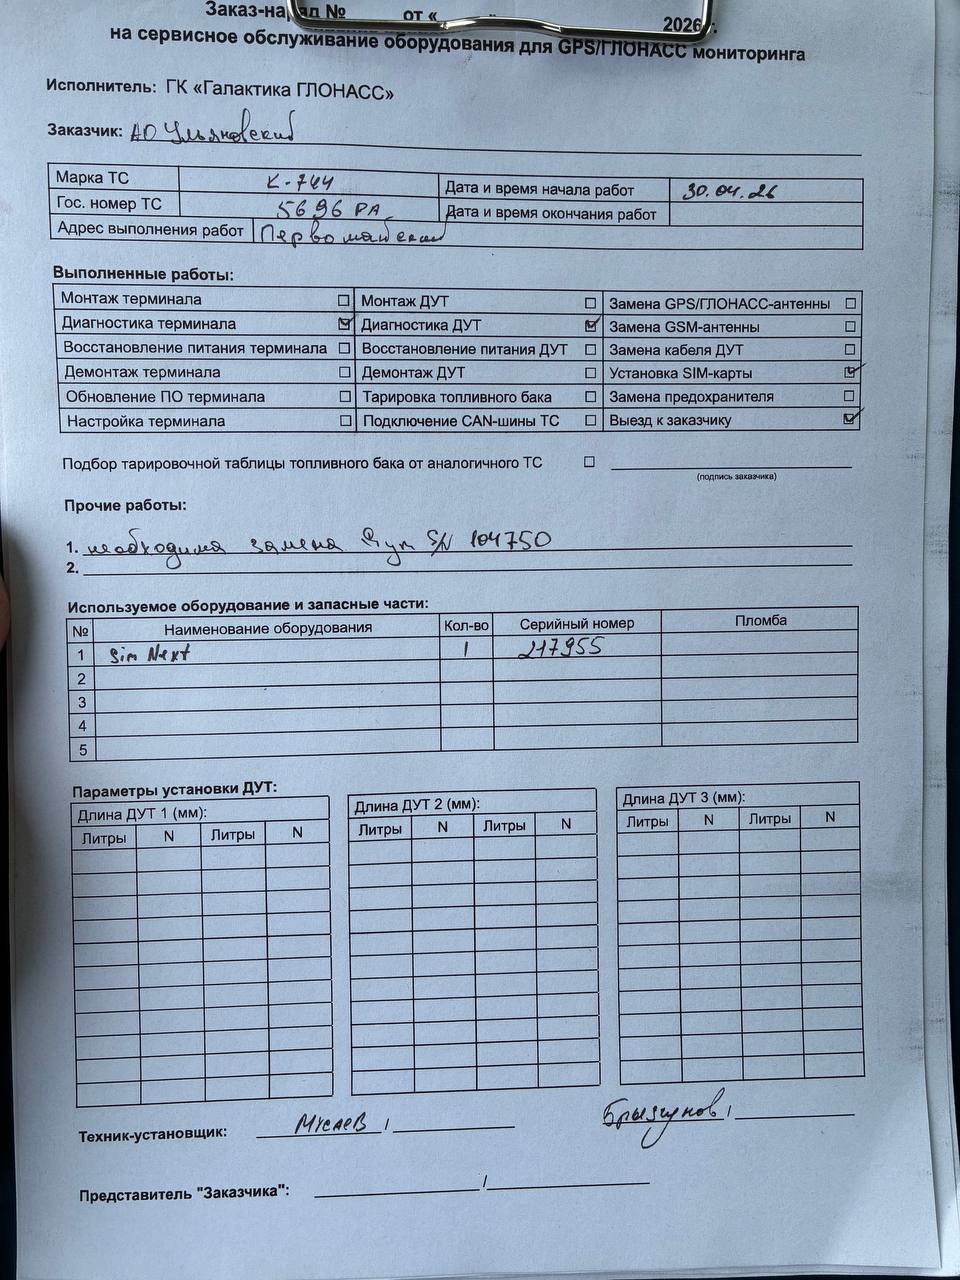 Заказ-наряд № от « 2026 г.
на сервисное обслуживание оборудования для GPS/ГЛОНАСС мониторинга
Исполнитель: ГК «Галактика ГЛОНАСС»
Заказчик: АО Ульяновский
Марка ТС К-744 Дата и время начала работ 30.04.26
Гос. номер ТС 5696 РА Дата и время окончания работ
Адрес выполнения работ Первомайский
Выполненные работы:
Монтаж терминала ☐ Монтаж ДУТ ☐ Замена GPS/ГЛОНАСС-антенны ☐
Диагностика терминала ☑ Диагностика ДУТ ☑ Замена GSM-антенны ☐
Восстановление питания терминала ☐ Восстановление питания ДУТ ☐ Замена кабеля ДУТ ☐
Демонтаж терминала ☐ Демонтаж ДУТ ☐ Установка SIM-карты ☑
Обновление ПО терминала ☐ Тарировка топливного бака ☐ Замена предохранителя ☐
Настройка терминала ☐ Подключение CAN-шины ТС ☐ Выезд к заказчику ☑
Подбор тарировочной таблицы топливного бака от аналогичного ТС ☐
(подпись заказчика)
Прочие работы:
1. необходима замена Дут S/N 104750
2.
Используемое оборудование и запасные части:
№ Наименование оборудования Кол-во Серийный номер Пломба
1 Sim Next 1 217955
2
3
4
5
Параметры установки ДУТ:
Длина ДУТ 1 (мм): Длина ДУТ 2 (мм): Длина ДУТ 3 (мм):
Литры N Литры N Литры N Литры N Литры N Литры N
Техник-установщик: Мусаев / Брызгунов /
Представитель "Заказчика": /